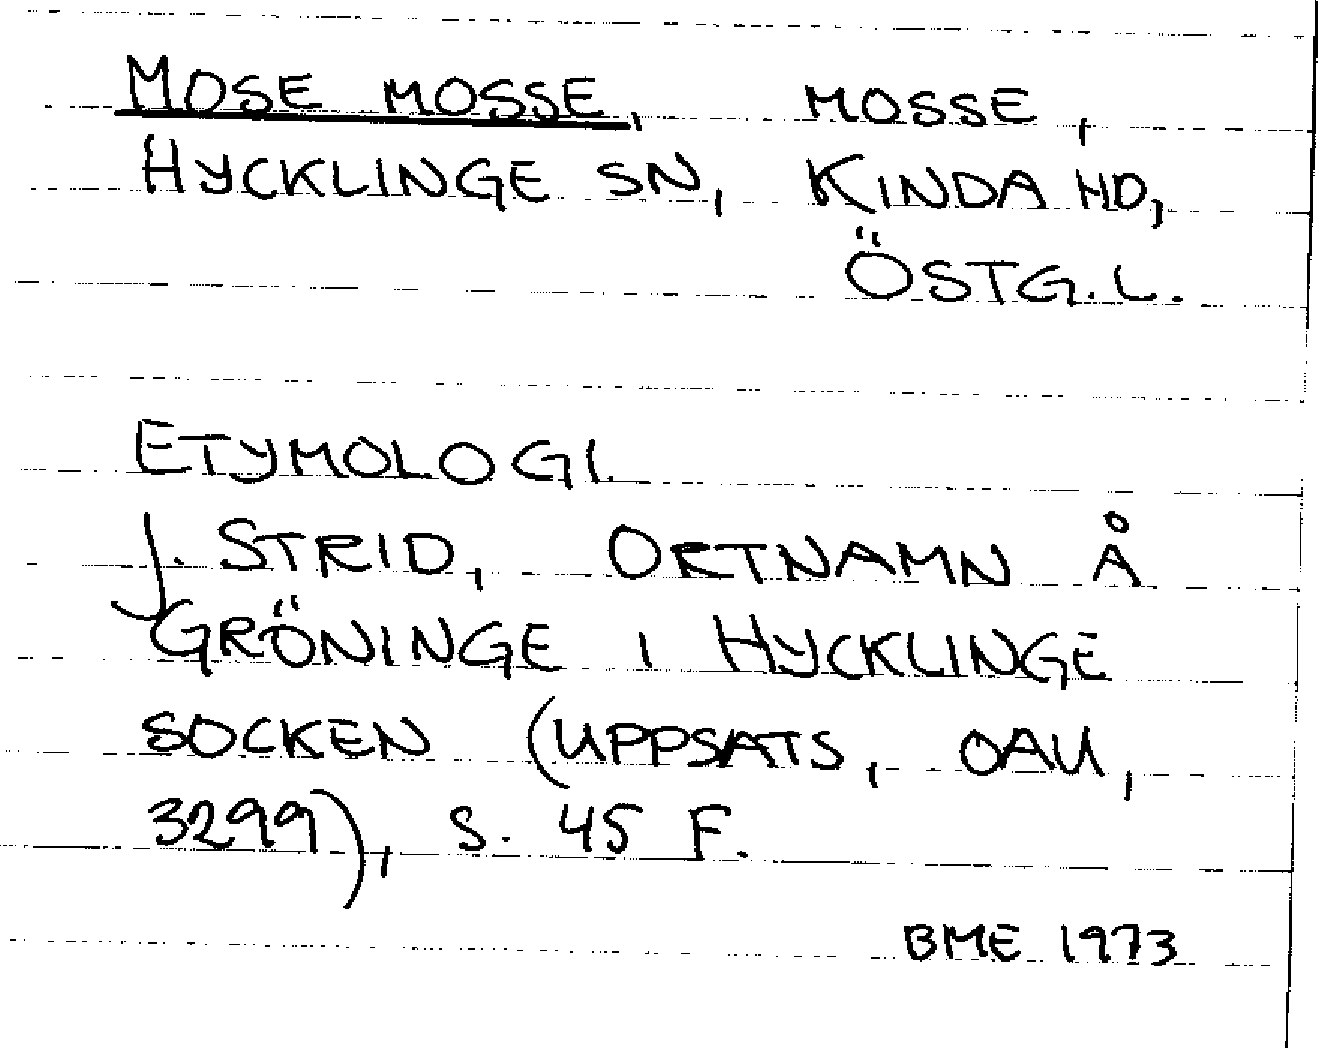 MOSE MOSSE, MOSSE,
HYCKLINGE SN, KINDA HD,
ÖSTG.L.
ETYMOLOGI.
J. STRID, ORTNAMN Å
GRÖNINGE I HYCKLINGE
SOCKEN (UPPSATS, OAU,
3299), S. 45 F.
BME 1973